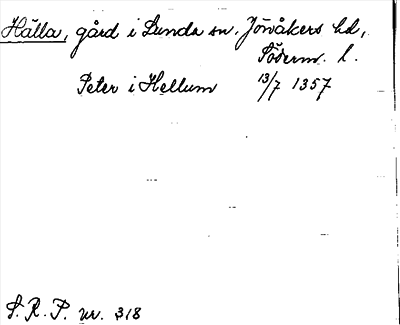 Hälla, gård i Lunda sn. Jönåkers hd,
Söderm. l.
Peter i Hellum 13/7 1357
S. R. P. nr. 318